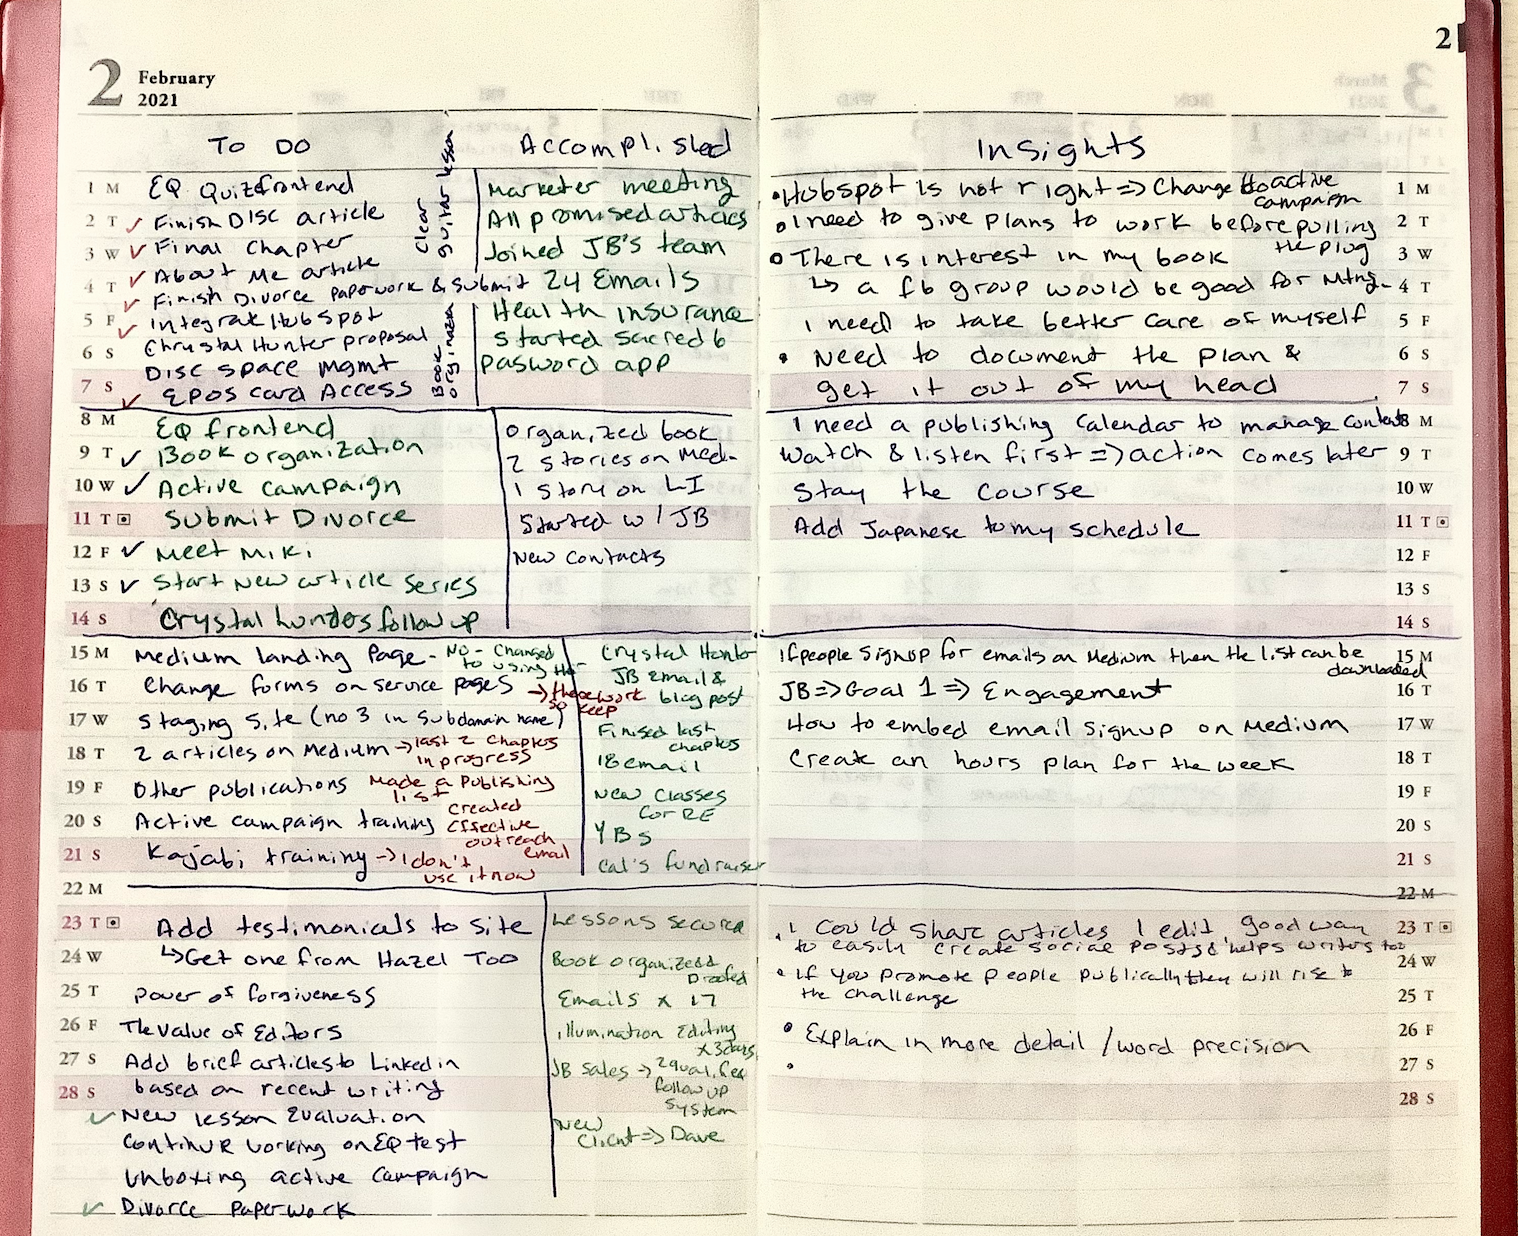 2
2 February
2021
To Do
Accomplished
Insights
1 M EQ Quiz frontend
2 T ✓ Finish DISC article
3 W ✓ Final Chapter
✓ About Me article
4 T ✓ Finish Divorce Paperwork & Submit
5 F ✓ Integrate HubSpot
6 S Chrystal Hunter proposal
DISC space mgmt
7 S ✓ EPOS card Access
Clear guitar lesson
Book organize
Marketer meeting
All promised articles
Joined JB's team
24 Emails
Health insurance
started sacred 6
pasword app
• Hubspot is not right => Change to active campaign 1 M
• I need to give plans to work before pulling the plug 2 T
• There is interest in my book 3 W
↳ a fb group would be good for Mtng. 4 T
I need to take better care of myself 5 F
• Need to document the plan & 6 S
get it out of my head 7 S
8 M EQ frontend
9 T ✓ Book organization
10 W ✓ Active campaign
11 T Submit Divorce
12 F ✓ Meet Miki
13 S ✓ Start New article Series
14 S Crystal Hunter follow up
organized book
2 stories on Medi-
1 story on LI
Started w/ JB
New contacts
I need a publishing Calendar to manage content 8 M
Watch & listen first => action comes later 9 T
Stay the course 10 W
Add Japanese to my schedule 11 T
12 F
13 S
14 S
15 M Medium landing Page - No - Changed to using the
16 T Change forms on service pages → these work so keep
17 W Staging Site (no 3 in Subdomain name)
18 T 2 articles on Medium → last 2 chapters in progress
19 F Other publications Made a Publishing list
20 S Active campaign training created effective outreach email
21 S Kajabi training → I don't use it now
Crystal Hunter
JB Email &
blog post
Finised last
chapters
18 email
New Classes
for RE
YBs
Cal's fundraiser
If people Signup for emails on Medium then the list can be downloaded 15 M
JB => Goal 1 => Engagement 16 T
How to embed email signup on Medium 17 W
Create an hours plan for the week 18 T
19 F
20 S
21 S
22 M
23 T Add testimonials to site
24 W ↳ Get one from Hazel Too
25 T Power of forgiveness
26 F The value of Editors
27 S Add brief articles to Linkedin
28 S based on recent writing
✓ New lesson Evaluation
Continue working on EQ test
Unboxing active Campaign
✓ Divorce Paperwork
Lessons secured
Book organized &
Proofed
Emails x 17
illumination Editing
x 3 days
JB sales → 2 qualified
follow up
system
New
Client => Dave
22 M
• I could share articles I edit, good way 23 T
to easily create social posts & helps writers too
24 W
• If you promote people publically they will rise to
the challenge 25 T
• Explain in more detail / word precision 26 F
• 27 S
28 S